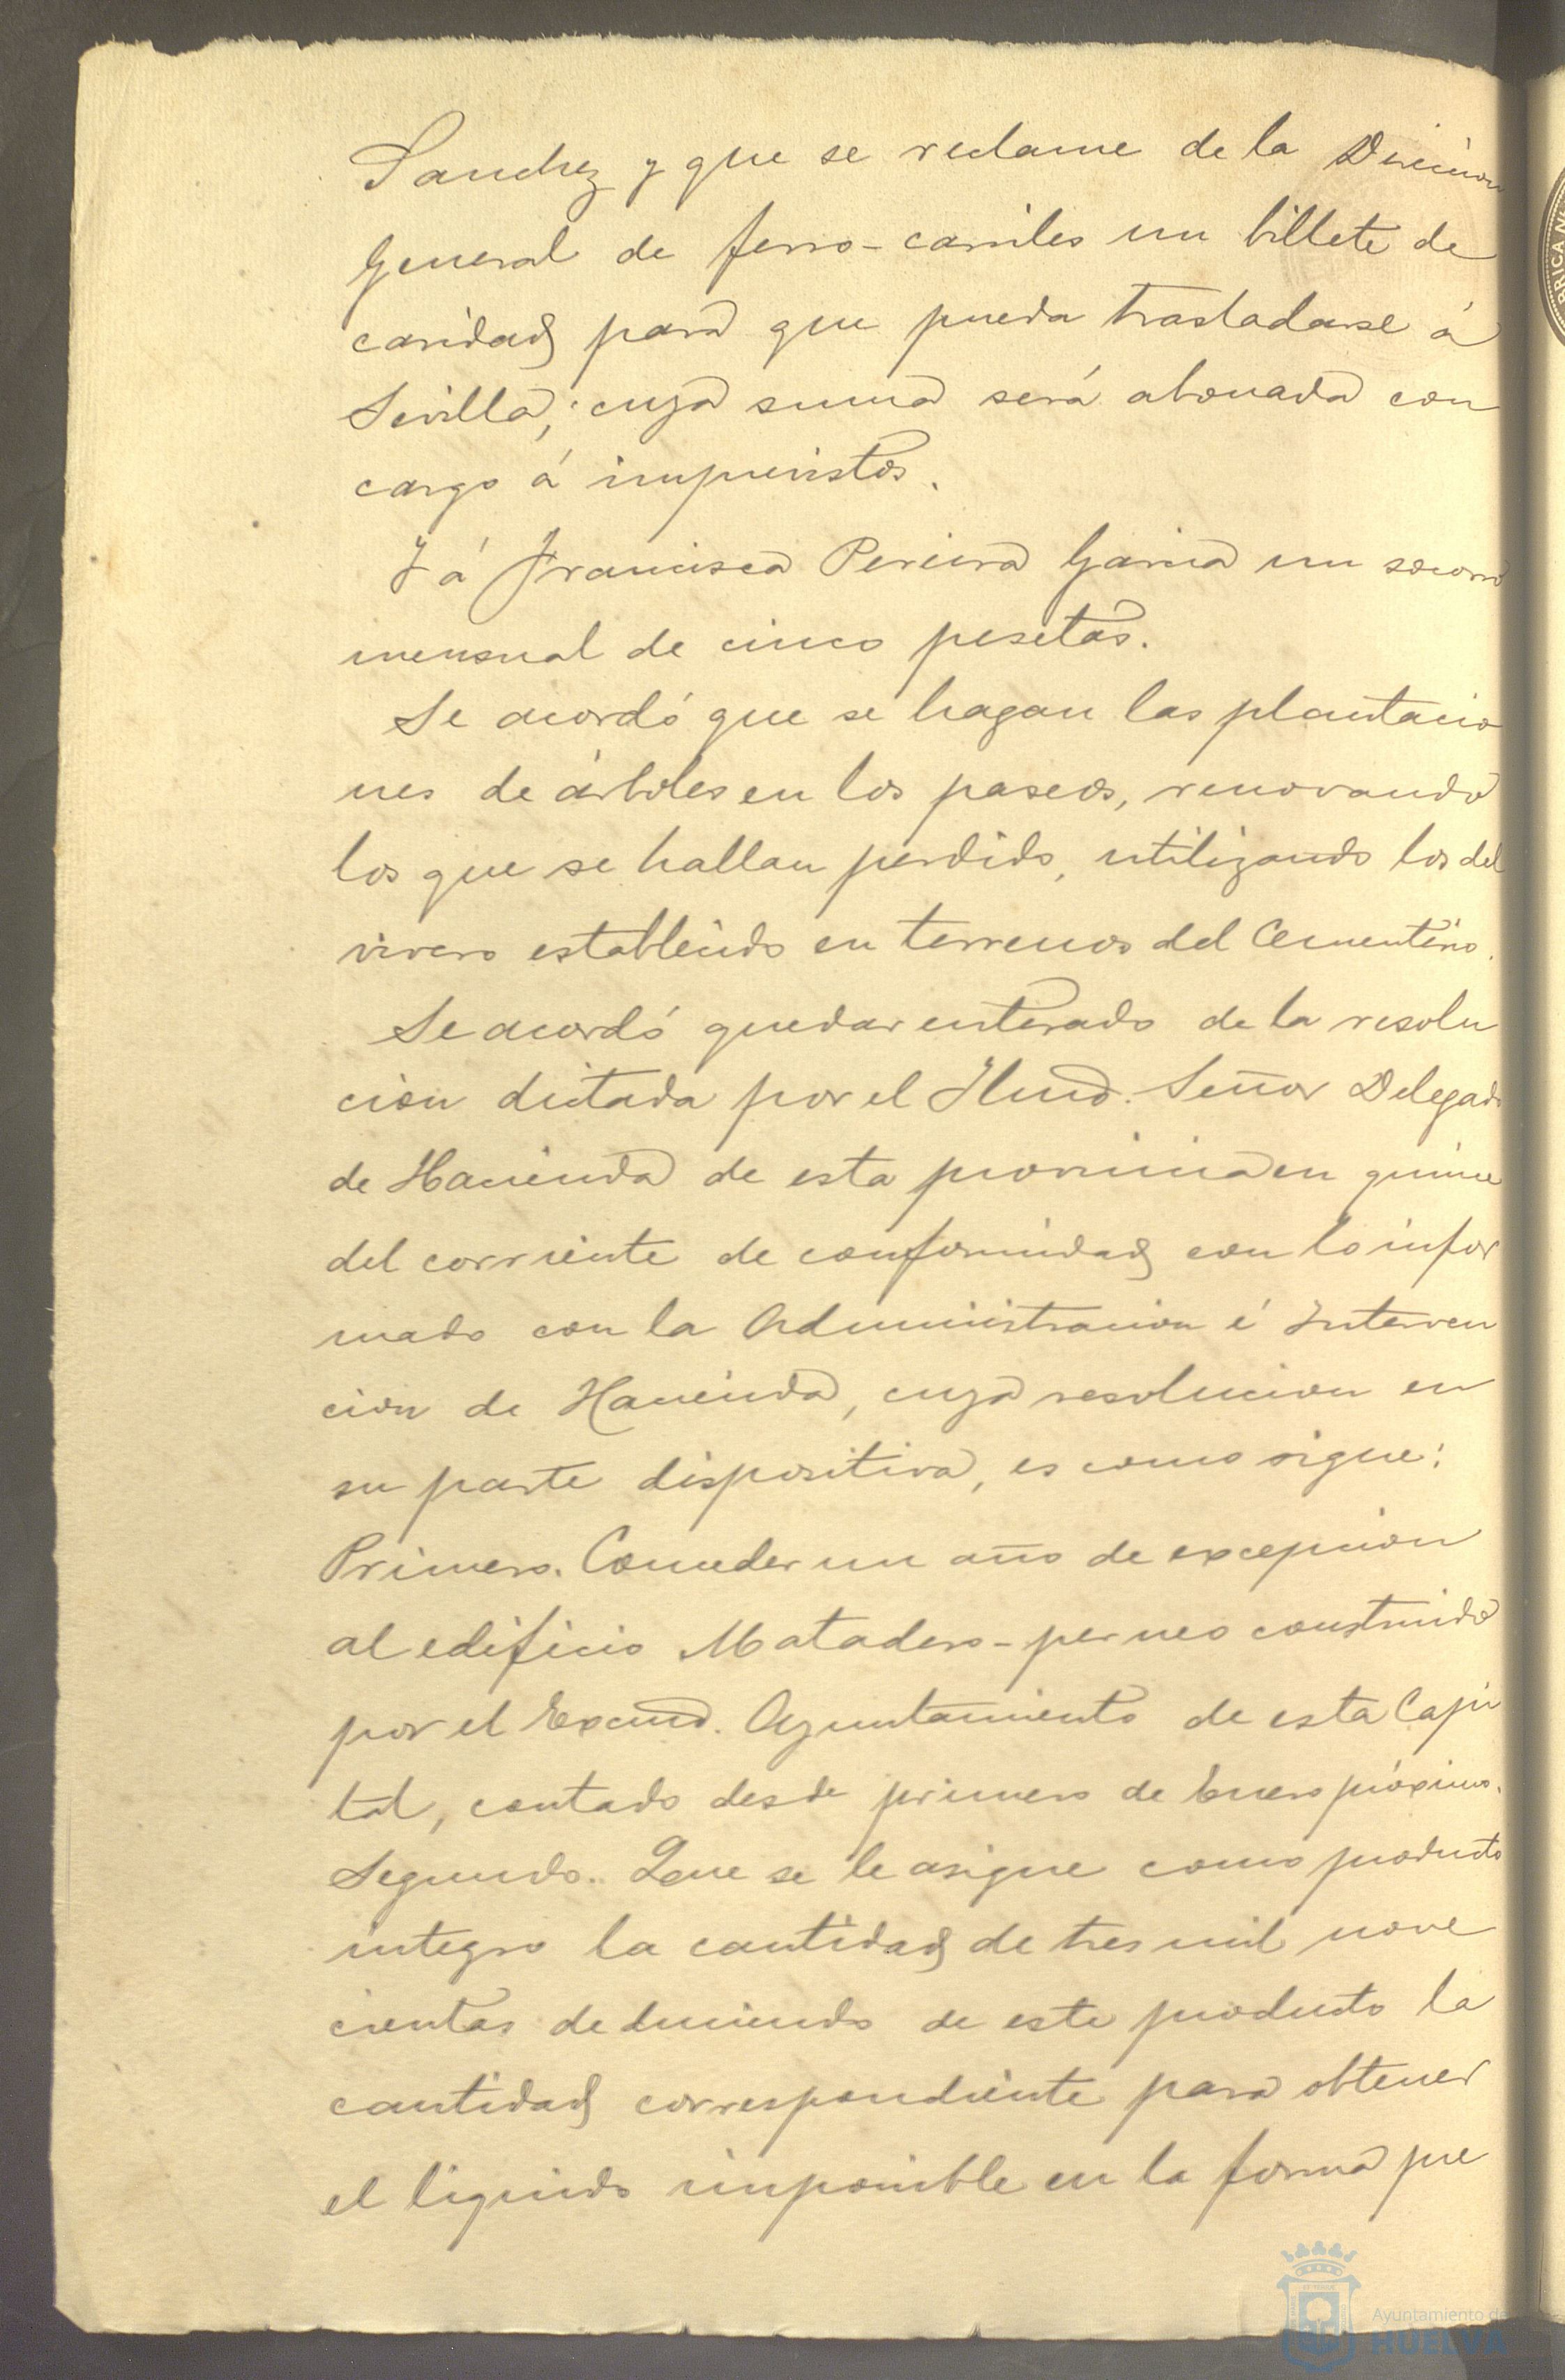 Sanchez y que se reclame de la Direccion
General de ferro-carriles un billete de
caridad para que pueda trasladarse á
Sevilla; cuya suma será abonada con
cargo á imprevistos.
Y á Francisca Pereira Garcia un socorro
mensual de cinco pesetas.
Se acordó que se hagan las plantacio
nes de árboles en los paseos, renovando
los que se hallan perdido, utilizando los del
vivero establecido en terrenos del Cementerio.
Se acordó quedar enterado de la resolu
cion dictada por el Ilmo. Señor Delegado
de Hacienda de esta provincia en quince
del corriente de conformidad con lo infor
mado con la Administracion é Interven
cion de Hacienda, cuya resolucion en
su parte dispositiva, es como sigue:
Primero. Conceder un año de excepcion
al edificio Matadero-perneo construido
por el Excmo. Ayuntamiento de esta Capi
tal, contado desde primero de Enero próximo.
Segundo. Que se le asigne como producto
integro la cantidad de tres mil nove
cientas deduciendo de este producto la
cantidad correspondiente para obtener
el liquido imponible en la forma pre
Ayuntamiento de
HUELVA